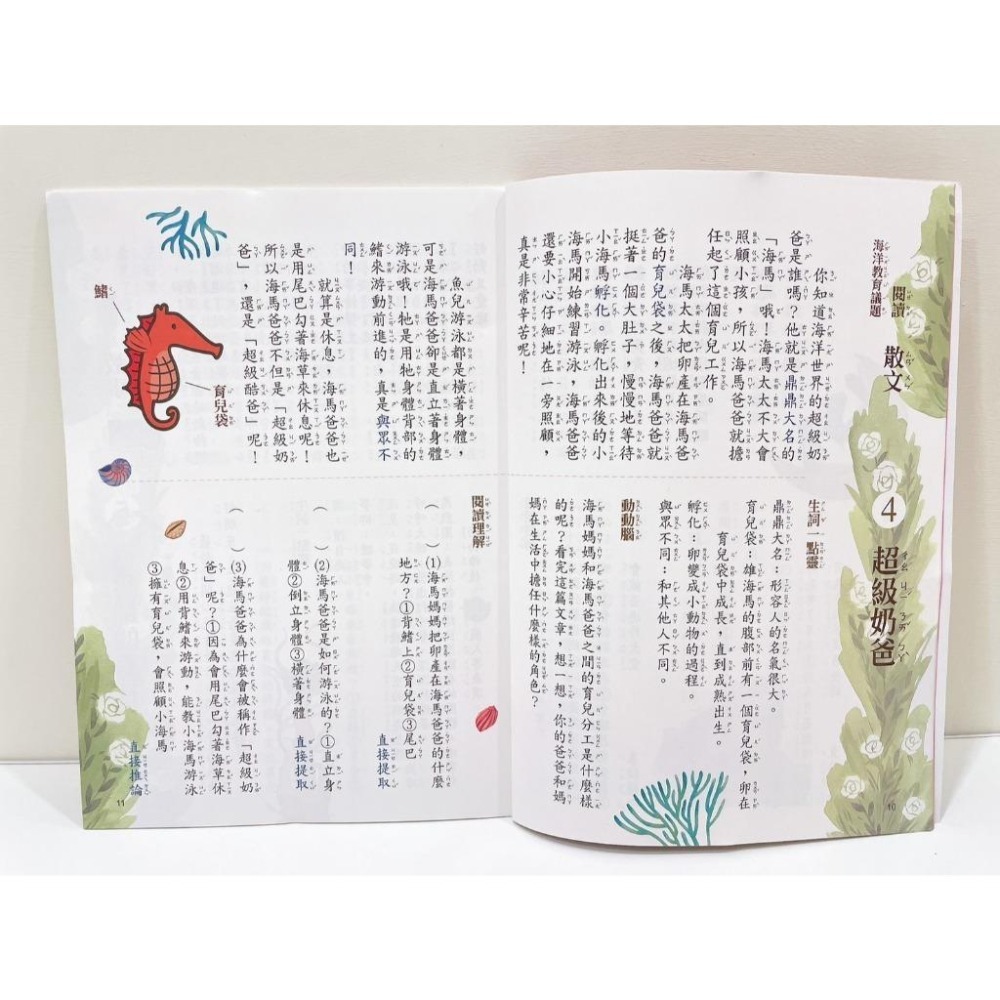 海洋教育議題
閱讀 散文
4 超級奶爸
你知道海洋世界的超級奶
爸是誰嗎？他就是鼎鼎大名的
「海馬」哦！海馬太太不大會
照顧小孩，所以海馬爸爸就擔
任起了這個育兒工作。
海馬太太把卵產在海馬爸
爸的育兒袋之後，海馬爸爸就
挺著一個大肚子，慢慢地等待
小海馬孵化。孵化出來後的小
海馬開始練習游泳，海馬爸爸
還要小心仔細地在一旁照顧，
真是非常辛苦呢！
生詞一點靈
鼎鼎大名：形容人的名氣很大。
育兒袋：雄海馬的腹部前有一個育兒袋，卵在
育兒袋中成長，直到成熟出生。
孵化：卵變成小動物的過程。
與眾不同：和其他人不同。
動動腦
海馬媽媽和海馬爸爸之間的育兒分工是什麼樣
的呢？看完這篇文章，想一想，你的爸爸和媽
媽在生活中擔任什麼樣的角色？
10
魚兒游泳都是橫著身體，
可是海馬爸爸卻是直立著身體
游泳哦！牠是用牠身體背部的
鰭來游動前進的，真是與眾不
同！
就算是休息，海馬爸爸也
是用尾巴勾著海草來休息呢！
所以海馬爸爸不但是「超級奶
爸」，還是「超級酷爸」呢！
育兒袋
鰭
閱讀理解
（ ）(1)海馬媽媽把卵產在海馬爸爸的什麼
地方？①背鰭上②育兒袋③尾巴
直接提取
（ ）(2)海馬爸爸是如何游泳的？①直立身
體②倒立身體③橫著身體
直接提取
（ ）(3)海馬爸爸為什麼會被稱作「超級奶
爸」呢？①因為會用尾巴勾著海草休
息②用背鰭來游動，能教小海馬游泳
③擁有育兒袋，會照顧小海馬
直接推論
11